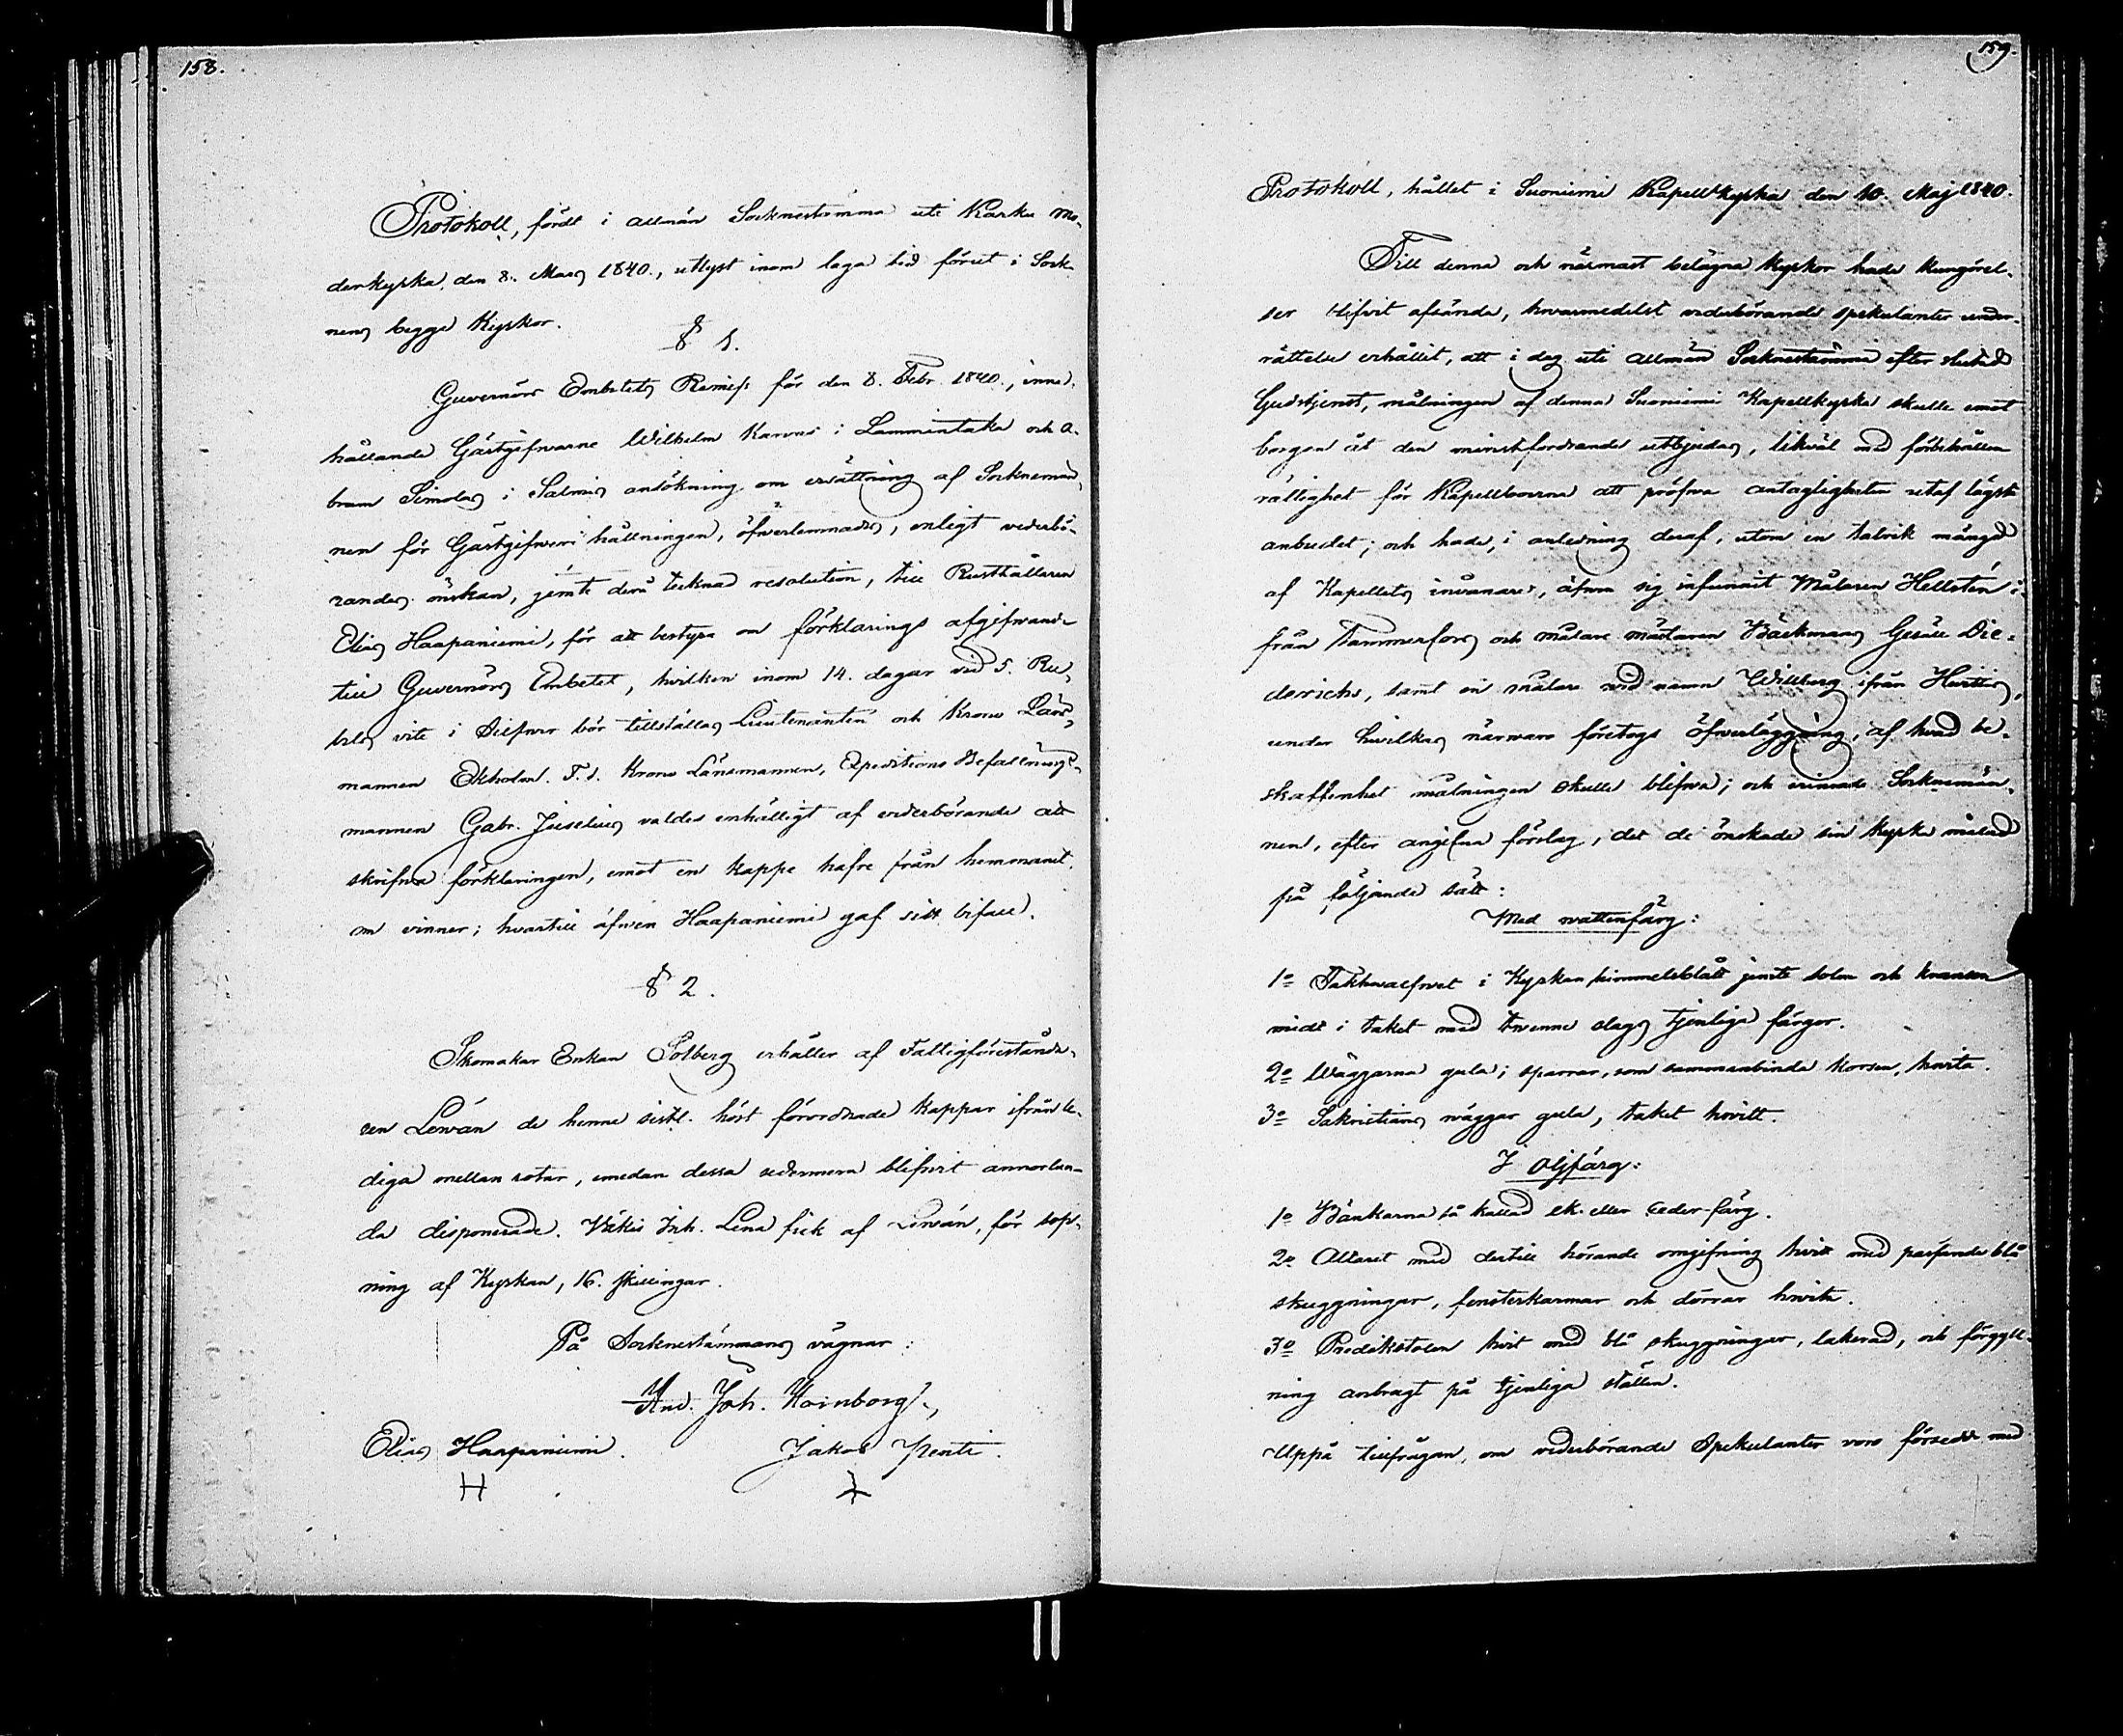 158.
Protokoll, fördt i allmän Socknestämma uti Karku mo-
derkyrka, den 8. Mars 1840., utlyst inom laga tid förut i Sock-
nens begge Kyrkor.
§ 1.
Guvernörs Embetets Remiss för den 8. Febr. 1840., inne-
hållande Gästgifwarne Wilhelm Karvas i Lammintaka och A-
bram Simolas i Salmis ansökning om ersättning af Socknemän-
nen för Gästgifweri hållningen, öfwerlemnades, enligt vederbö-
randes önskan, jemte derå tecknad resolution, till Rusthållaren
Elias Haapaniemi, för att bestyra om förklarings afgifwande
till Guvernörs Embetet, hvilken inom 14. dagar vid 5. Ru-
bels vite i Silfwer bör tillställas Lieutenanten och Krono Läns-
mannen Ekholm. F.d. Krono Länsmannen, Expeditions Befallnings-
mannen Gabr. Juselius valdes enhälligt af vederbörande att
skrifwa förklaringen, emot en kappe hafre från hemmanet,
om vinner; hvartill äfwen Haapaniemi gaf sitt bifall.
§ 2.
Skomakar Enkan Solberg erhåller af Fattigförestånda-
ren Lewán de henne sistl. höst förordnade kappar ifrån le-
diga mellan rotar, emedan dessa sedermera blifwit annorlun-
da disponerade. Inh. Lena fick af Lewán, för sop-
ning af Kyrkan, 16. skillingar.
På Socknestämmans vägnar:
And. Joh. Hornborg.
Elias Haapaniemi. Jakob Pentti.
H
159.
Protokoll, hållet i Suoniemi Kapellkyrka den 10. Maj 1840.
Till denna och närmast belägna kyrkor hade kungörel-
ser blifvit afsända, hwarmedelst vederbörande spekulanter under-
rättelse erhållit, att i dag uti allmän Socknestämma efter slutad
Gudstjenst, målningen af denna Suoniemi Kapellkyrka skulle emot
borgen åt den minstfordrande utbjudas, likväl med förbehållen
rättighet för Kapellboerna att pröfwa antagligheten utaf lägsta
anbudet; och hade, i anledning deraf, utom en talrik mängd
af Kapellets invånare, äfwen sig infunnit Målaren Hellstén i-
från Tammerfors och målare mästaren Bäckmans Gesäll Die-
derichs, samt en målare vid namn Willberg ifrån Hwittis,
under hwilkas närwaro företogs öfwerläggning, af hvad be-
skaffenhet målningen skulle blifwa; och erinrade Socknemän-
nen, efter angifna förslag, det de önskade sin kyrka målad
på följande sätt:
Med wattenfärg:
1o Takhwalfwet i Kyrkan himmelsblått jemte solen och kransen
midt i taket med twenne slags tjenliga färger.
2o Wäggarna gula; sparrar, som sammanbinda korsen, hwita.
3o Sakristians väggar gula, taket hwitt.
I oljfärg:
1o Bänkarna så kallad ek- eller ceder-färg.
2o Altaret med dertill hörande omgifning hvit med passande blå
skuggningar, fensterkarmar och dörrar hwita.
3o Predikstolen hvit med blå skuggningar, lakerad, och förgyll-
ning anbragt på tjenliga ställen.
Uppå tillfrågan, om vederbörande Spekulanter voro försedde med